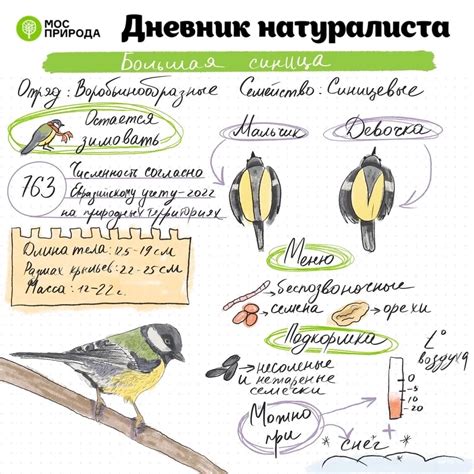 МОС
ПРИРОДА
Дневник натуралиста
Большая синица
Отряд: Воробьинообразные
Семейство: Синицевые
Остается
зимовать
Мальчик
Девочка
763
Численность согласно
Евразийскому учету-2022
на природных территориях
Длина тела: 12.5-19 см
Размах крыльев: 22-25 см
Масса: 12-22 г.
Меню
беспозвоночные
семена
орехи
Подкормка
несоленые
и нежареные
семечки
t°
воздуха
0
-5
-10
-20
Можно
при
+
* снег *